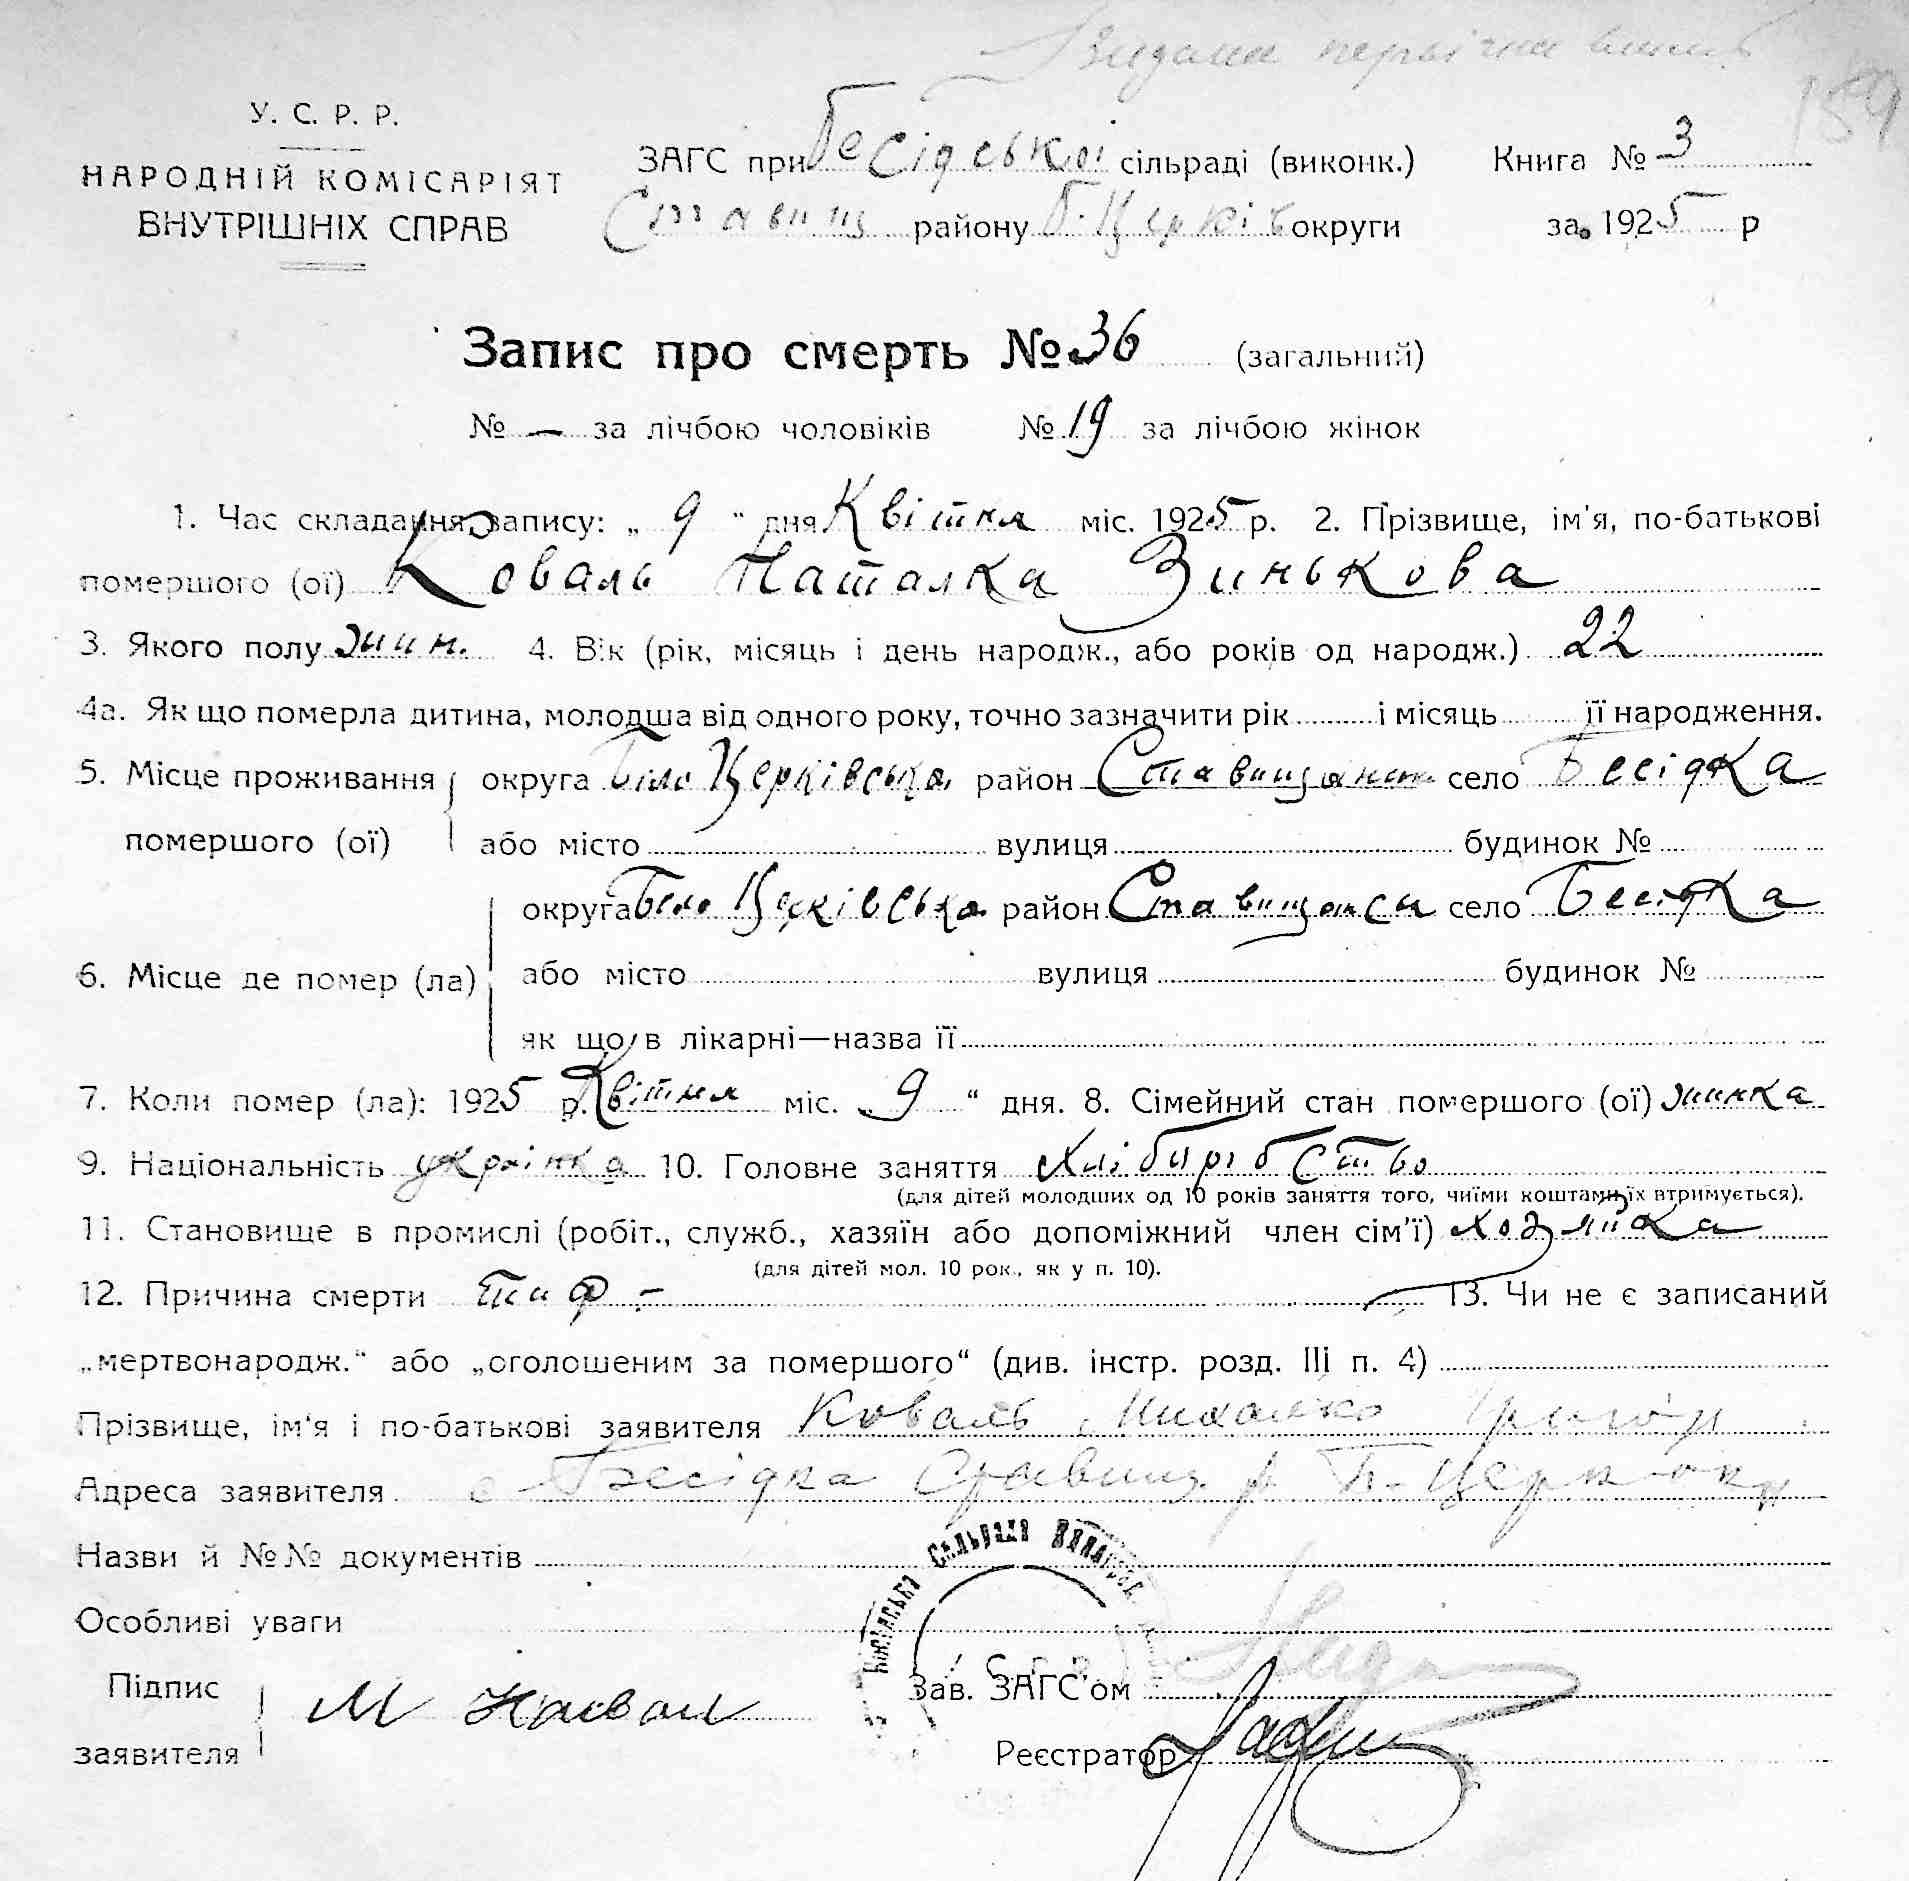 Видана первічна
159
У. С. Р. Р.
НАРОДНІЙ КОМІСАРІЯТ
ВНУТРІШНІХ СПРАВ
ЗАГС при Бесідської сільраді (виконк.) Книга № 3
Ставищ району Б-Церків округи за 1925 р
Запис про смерть № 36 (загальний)
№ — за лічбою чоловіків № 19 за лічбою жінок
1. Час складання запису: „ 9 “ дня Квітня міс. 1925 р. 2. Прізвище, ім'я, по-батькові
помершого (ої) Коваль Наталка Зинькова
3. Якого полу жин. 4. Вік (рік, місяць і день народж., або років од народж.) 22
4а. Як що померла дитина, молодша від одного року, точно зазначити рік і місяць її народження.
5. Місце проживання помершого (ої) округа Біло Церківська район Ставищанськ село Бесідка
або місто вулиця будинок №
6. Місце де помер (ла) округа Біло Церківська район Ставищанськ село Бесідка
або місто вулиця будинок №
як що в лікарні—назва її
7. Коли помер (ла): 1925 р. Квітня міс. „ 9 “ дня. 8. Сімейний стан помершого (ої) жинка
9. Національність украінка 10. Головне заняття хліборобство
(для дітей молодших од 10 років заняття того, чиїми коштами їх втримується).
11. Становище в промислі (робіт., служб., хазяїн або допоміжний член сім'ї) хозяйка
(для дітей мол. 10 рок., як у п. 10).
12. Причина смерти тиф - 13. Чи не є записаний
„мертвонародж.“ або „оголошеним за помершого“ (див. інстр. розд. III п. 4)
Прізвище, ім'я і по-батькові заявителя Коваль Михалко Григор
Адреса заявителя с Бесідка Ставищ р Б-Церк окр
Назви й №№ документів
Особливі уваги
Підпис заявителя М Коваль
Зав. ЗАГС'ом
Реєстратор